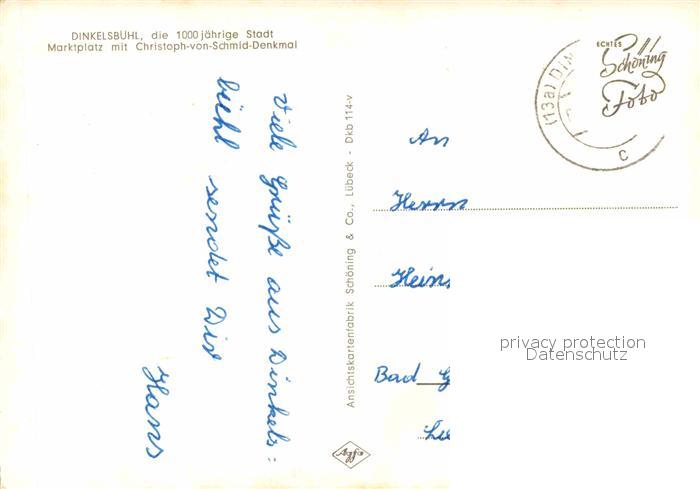 DINKELSBÜHL, die 1000jährige Stadt
Marktplatz mit Christoph-von-Schmid-Denkmal
Viele Grüße aus Dinkels=
bühl sendet Dir
Hans
Ansichtskartenfabrik Schöning & Co., Lübeck - Dkb 114-v
Agfa
ECHTES
Schöning
Foto
(13a) DIN
c
An
Herrn
Heinz
Bad
privacy protection
Datenschutz